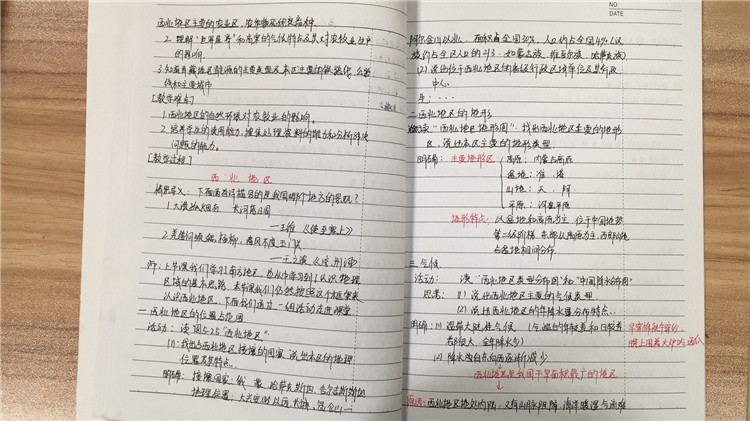 西北地区主要的农业区,农作物及优良畜种.
2. 理解"早穿皮袄"和高寒的气候特点及其对农牧业、住户
的影响
3. 知
铁和主要城市
[教学难点]
1. 西北地区的自然环境对农牧业的影响.
2. 培养学生的读图能力、搜集处理资料的能力和分析解决
问题的能力.
[教学过程]
西北地区
情景导入: 下面两首诗描写的是我国哪个地方的景观?
1. 大漠孤烟直 长河落日圆
——王维《使至塞上》
2. 羌笛何须怨杨柳, 春风不度玉门关
——王之涣《凉州词》
师: 上节课我们学习了南方地区, 也从中学习到了认识地理
区域的基本思路, 本节课我们仍然按照这个框架来
认识西北地区, 下面我们通过一组活动走进课堂
一 西北地区的位置与范围
活动: 读图5.25"西北地区"
(1) 找出与西北地区接壤的国家, 说出本区的地理
位置及其特点.
明确: 接壤国家: 俄、蒙、哈萨克斯坦、吉尔吉斯斯坦
地理位置: 大兴安岭以西, 长城、昆仑山—
阿尔金山以北, 面积占全国30%, 人口约占全国4%
族约占全区人口的1/3: 如蒙古族、维吾尔族、哈萨克族)
(2) 说出位于西北地区的省级行政区域单位及其行政
中心.
生: ····
二 西北地区的地形
读"西北地区地形图", 找出西北地区主要的地形
区, 说出本区主要的地形类型
明确: 主要地形区 高原: 内蒙古高原
盆地: 准、塔
山地: 天、阿
平原: 河套平原
地形特点: 以盆地和高原为主, 位于中国地势
第二级阶梯, 东部以高原为主, 西部山地
与盆地相间分布.
三 气候
活动: 读"西北区类型分布图"和"中国降水分布图"
思考: (1) 说出西北地区主要的气候类型
(2) 说出西北地区的年降水量分布特点.
明确: (1) 温带大陆性气候 (气温的年较差和日较差
都很大, 全年降水少)
早穿棉袄午穿纱,
晚上围着火炉吃西瓜
(2) 降水线自东向西逐渐减少
西北地区是我国干旱面积最广的地区
原因: 西北地区地处内陆, 又有山脉阻隔, 海洋暖湿气流难